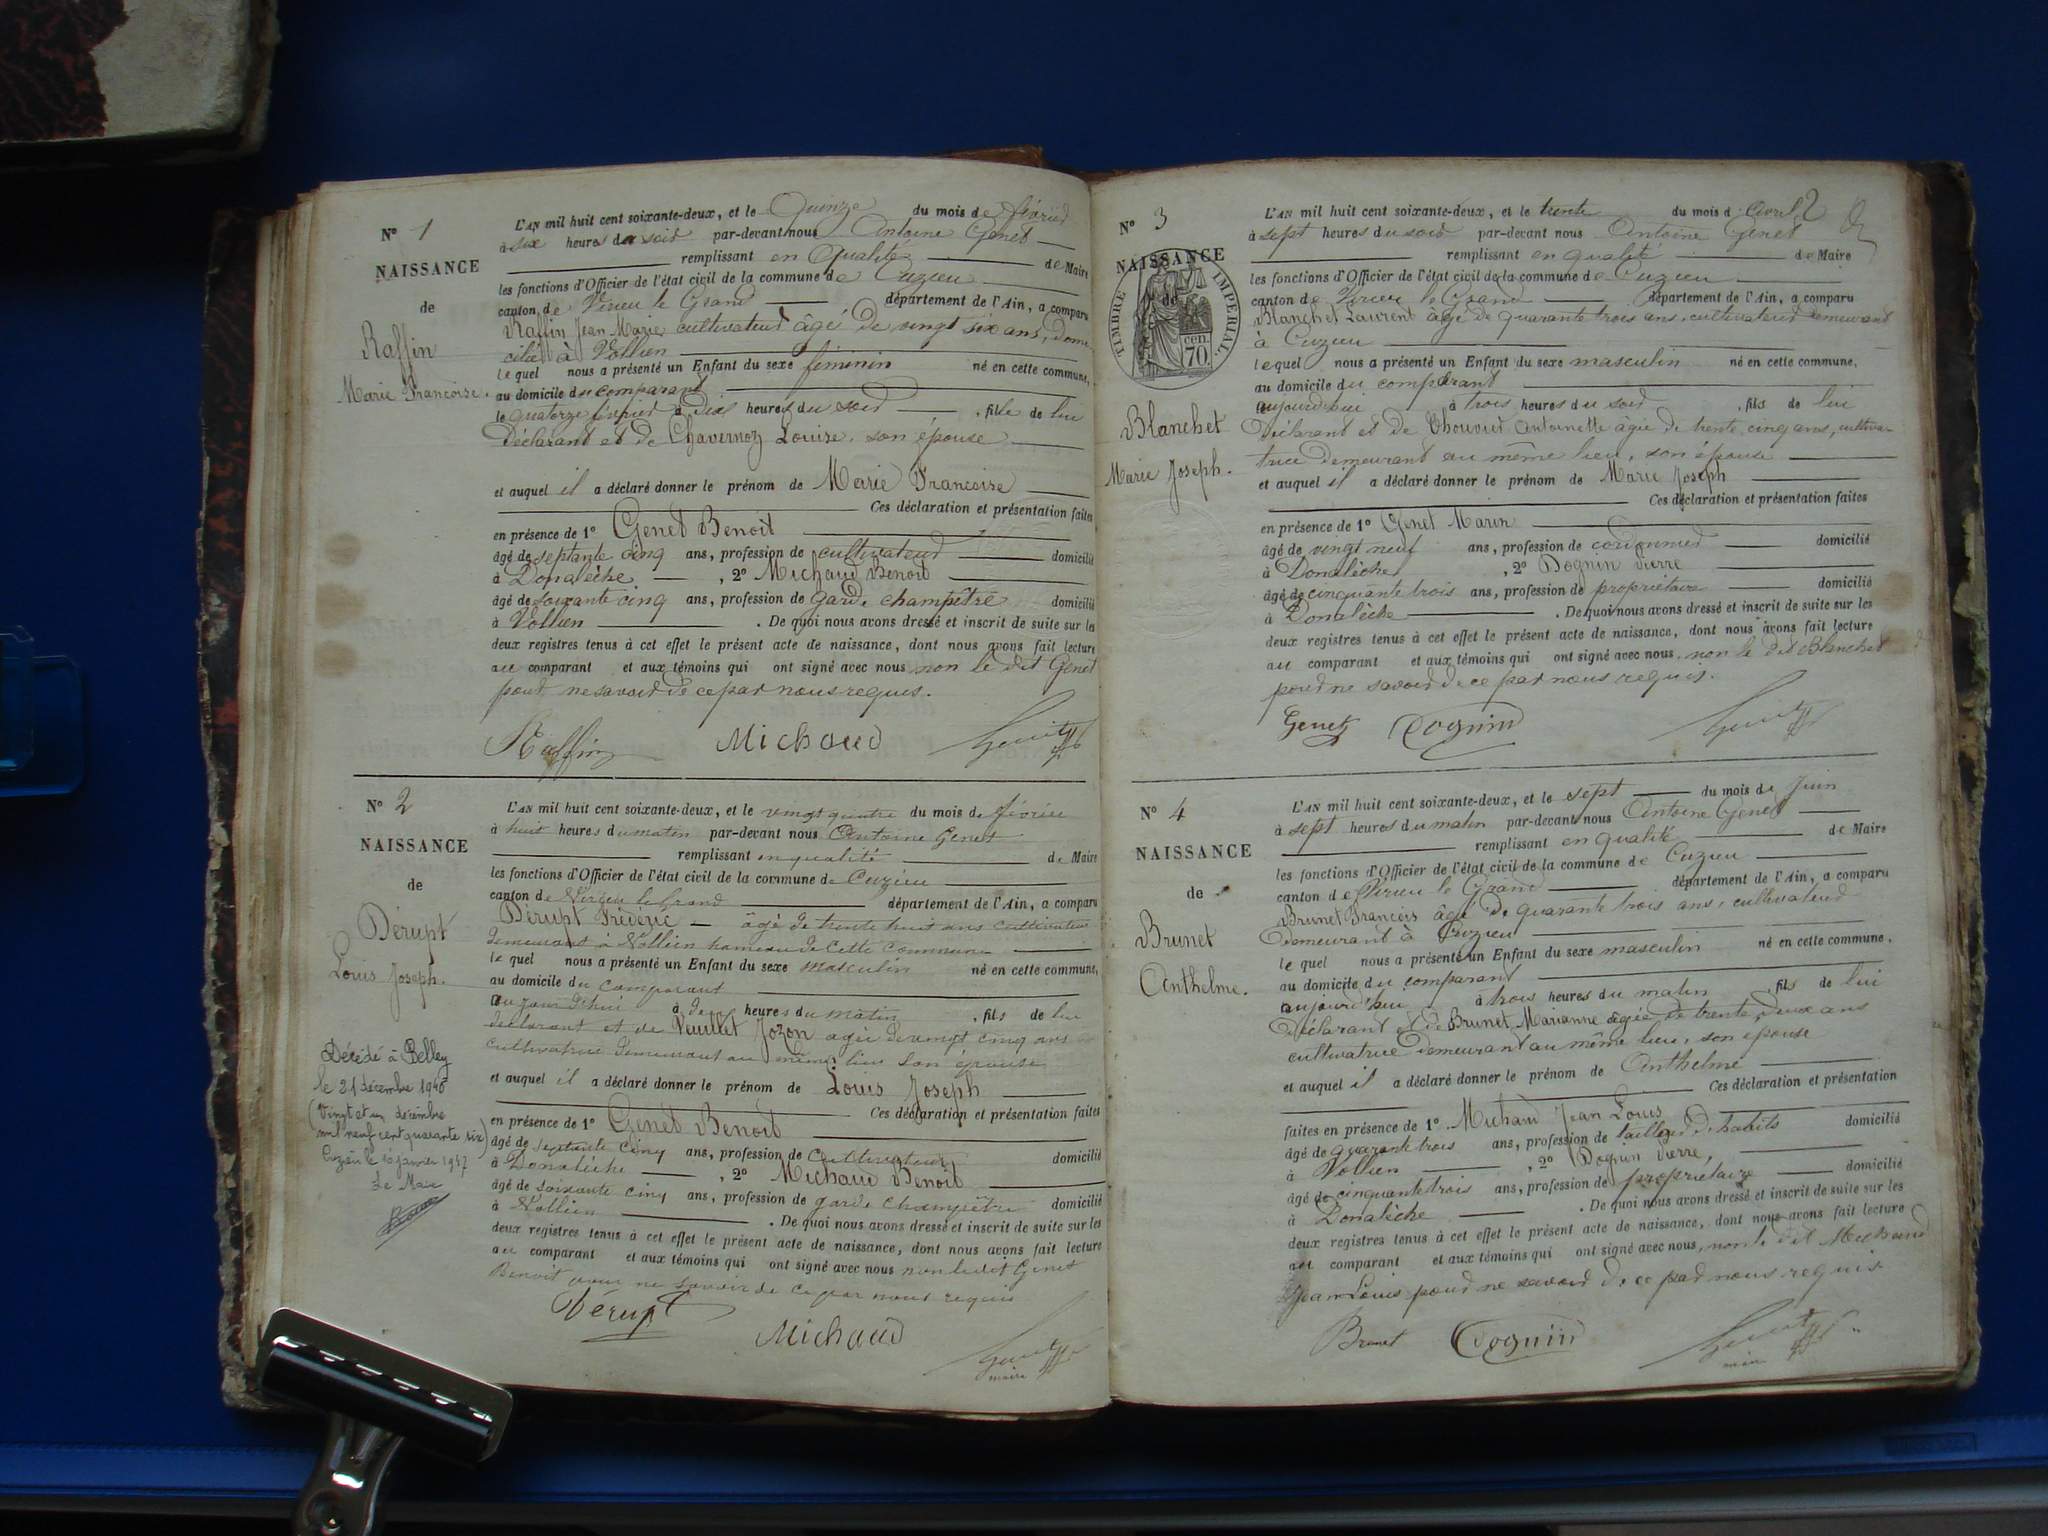 N° 1
NAISSANCE
de
Raffin
Marie Francoise.
L'AN mil huit cent soixante-deux, et le Quinze du mois de février
à six heures du soir par-devant nous Antoine Genet
remplissant en Qualité de Maire
les fonctions d'Officier de l'état civil de la commune de Cuzieu
canton de Virieu le Grand département de l'Ain, a comparu
Raffin Jean Marie cultivateur âgé de vingt six ans, domi
cilié à Vollien
le quel nous a présenté un Enfant du sexe féminin né en cette commune,
au domicile du comparant
le quatorze février à Dix heures du soir , fille de lui
Déclarant et de Chavernoz Louise, son épouse
et auquel il a déclaré donner le prénom de Marie Francoise
Ces déclaration et présentation faites
en présence de 1° Genet Benoit
âgé de septante cinq ans, profession de cultivateur domicilié
à Donalèche , 2° Michaud Benoit
âgé de soixante cinq ans, profession de garde champêtre domicilié
à Vollien . De quoi nous avons dressé et inscrit de suite sur les
deux registres tenus à cet effet le présent acte de naissance, dont nous avons fait lecture
au comparant et aux témoins qui ont signé avec nous non le dit Genet
pour ne savoir de ce par nous requis.
Raffin Michaud Genet
N° 2
NAISSANCE
de
Dérupt
Louis Joseph.
Décédé à Belley
le 21 décembre 1946
(Vingt et un décembre
mil neuf cent quarante six)
Cuzieu le 10 janvier 1947
Le Maire
L'AN mil huit cent soixante-deux, et le vingt quatre du mois de février
à huit heures du matin par-devant nous Antoine Genet
remplissant en qualité de Maire
les fonctions d'Officier de l'état civil de la commune de Cuzieu
canton de Virieu le Grand département de l'Ain, a comparu
Dérupt Fréderic âgé de trente huit ans cultivateur
demeurant à Vollien hameau de cette commune
le quel nous a présenté un Enfant du sexe masculin né en cette commune,
au domicile du comparant
aujourd'hui à heures du matin , fils de lui
déclarant et de Veuillet Jozon agée de vingt cinq ans
cultivatrice demeurant au même lieu son épouse
et auquel il a déclaré donner le prénom de Louis Joseph
Ces déclaration et présentation faites
en présence de 1° Genet Benoit
âgé de septante cinq ans, profession de cultivateur domicilié
à Donalèche , 2° Michaud Benoit
âgé de soixante cinq ans, profession de garde champêtre domicilié
à Vollien . De quoi nous avons dressé et inscrit de suite sur les
deux registres tenus à cet effet le présent acte de naissance, dont nous avons fait lecture
au comparant et aux témoins qui ont signé avec nous non ledit Genet
Benoit pour ne savoir de ce par nous requis
Dérupt Michaud Genet
maire
N° 3
NAISSANCE
de
TIMBRE IMPÉRIAL.
70 cen.
Blanchet
Marie Joseph.
2
L'AN mil huit cent soixante-deux, et le trente du mois d'avril
à sept heures du soir par-devant nous Antoine Genet
remplissant en qualité de Maire
les fonctions d'Officier de l'état civil de la commune de Cuzieu
canton de Virieu le Grand département de l'Ain, a comparu
Blanchet Laurent âgé de quarante trois ans, cultivateur demeurant
à Cuzieu
le quel nous a présenté un Enfant du sexe masculin né en cette commune,
au domicile du comparant
aujourd'hui à trois heures du soir , fils de lui
Déclarant et de Thouvier Antoinette âgée de trente cinq ans, cultiva-
trice demeurant au même lieu, son épouse
et auquel il a déclaré donner le prénom de Marie Joseph
Ces déclaration et présentation faites
en présence de 1° Genet Marin
âgé de vingt neuf ans, profession de cordonnier domicilié
à Donalèche , 2° Dognin Pierre
âgé de cinquante trois ans, profession de propriétaire domicilié
à Donalèche . De quoi nous avons dressé et inscrit de suite sur les
deux registres tenus à cet effet le présent acte de naissance, dont nous avons fait lecture
au comparant et aux témoins qui ont signé avec nous, non le dit Blanchet
pour ne savoir de ce par nous requis.
Genet Dognin Genet
N° 4
NAISSANCE
de
Brunet
Anthelme.
L'AN mil huit cent soixante-deux, et le sept du mois de Juin
à sept heures du matin par-devant nous Antoine Genet
remplissant en qualité de Maire
les fonctions d'Officier de l'état civil de la commune de Cuzieu
canton de Virieu le Grand département de l'Ain, a comparu
Brunet François âgé de quarante trois ans, cultivateur
demeurant à Cuzieu
le quel nous a présenté un Enfant du sexe masculin né en cette commune,
au domicile du comparant
aujourd'hui à trois heures du matin , fils de lui
Déclarant et de Brunet Marianne âgée de trente deux ans
cultivatrice demeurant au même lieu, son épouse
et auquel il a déclaré donner le prénom de Anthelme
Ces déclaration et présentation
faites en présence de 1° Michaud Jean Louis
âgé de quarante trois ans, profession de tailleur d'habits domicilié
à Vollien , 2° Dognin Pierre,
âgé de cinquante trois ans, profession de propriétaire domicilié
à Donalèche . De quoi nous avons dressé et inscrit de suite sur les
deux registres tenus à cet effet le présent acte de naissance, dont nous avons fait lecture
au comparant et aux témoins qui ont signé avec nous, non le dit Michaud
Jean Louis pour ne savoir de ce par nous requis.
Brunet Dognin Genet
maire